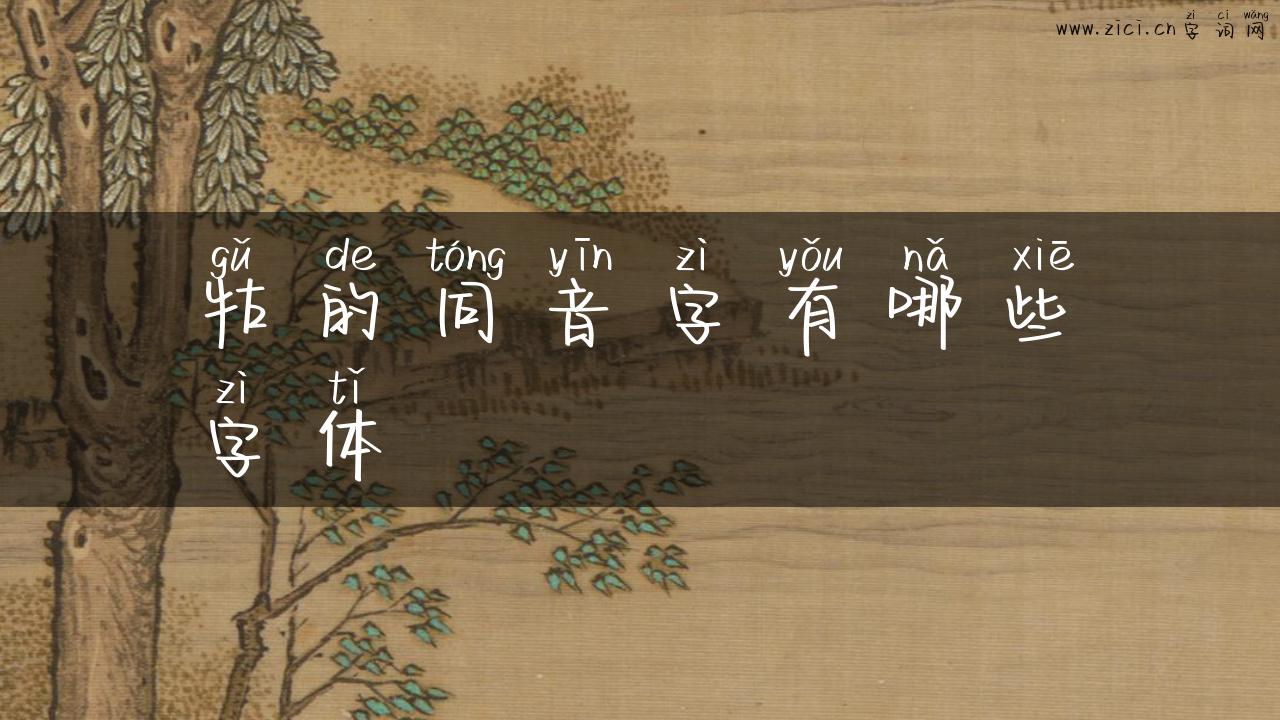 zì cí wǎng
www.zici.cn 字词网
gǔ de tóng yīn zì yǒu nǎ xiē
牯的同音字有哪些
zì tǐ
字体